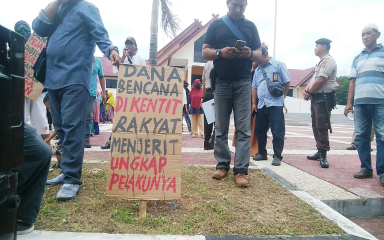 DANA
BENCANA
DI KENTIT
RAKYAT
MENJERIT
UNGKAP
PELAKUNYA